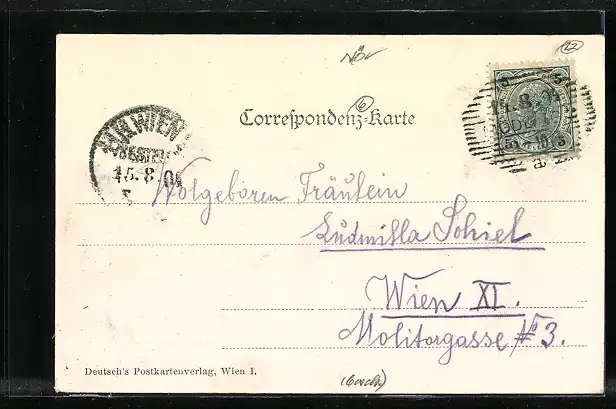 NÖ
12
6
Correspondenz-Karte
WIEN
BESTELLT
15.8.0
5 5
5 10 5
Wolgeboren Fräulein
Ludmilla Schiel
Wien XI.
Molitorgasse № 3.
Deutsch's Postkartenverlag, Wien I.